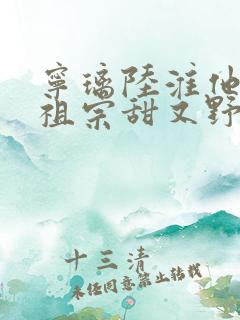 寧璃陸淮他
祖宗甜又野
十三清
未任同意禁止转载